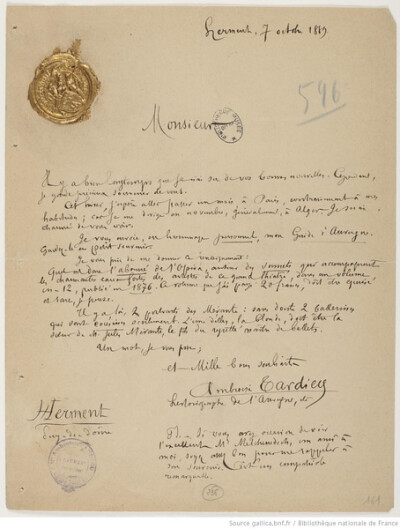 Herment, 7 octob. 1889
596
Monsieur
Il y a bien longtemps que je n'ai eu de vos bonnes nouvelles. Cependant,
je garde précieux souvenir de vous.
Cet hiver, j'espère aller passer un mois à Paris, contrairement à mes
habitudes ; car je me dirige en novembre, généralement, à Alger. Je serai
charmé de vous voir.
Je vous envoie, en hommage personnel, mon Guide d'Auvergne.
Gardez-le en souvenir.
Je vous prie de me donner un renseignement :
Quel est donc l'abonné de l'Opéra, auteur des sonnets qui accompagnent
les charmantes eaux-fortes des artistes de ce grand théâtre, dans un volume
in-12, publié en 1876. Ce volume que j'ai payé 20 francs, est épuisé
et rare, je pense.
Il y a, là, 2 portraits des Mérante : sans doute 2 ballerines
qui sont cousines seulement. L'une d'elles, la blonde, doit être la
sœur de M. Mérante, le fils du regretté maître de ballets.
Un mot, je vous prie ;
et Mille bons souhaits
Ambroise Tardieu
historiographe de l'Auvergne, &
Herment
Puy-de-Dôme
P.S. Si vous avez occasion de voir
l'excellent Mr, un ami à
moi, soyez assez bon pour me rappeler à
son souvenir. C'est un compatriote
remarquable.
161
Source gallica.bnf.fr / Bibliothèque nationale de France